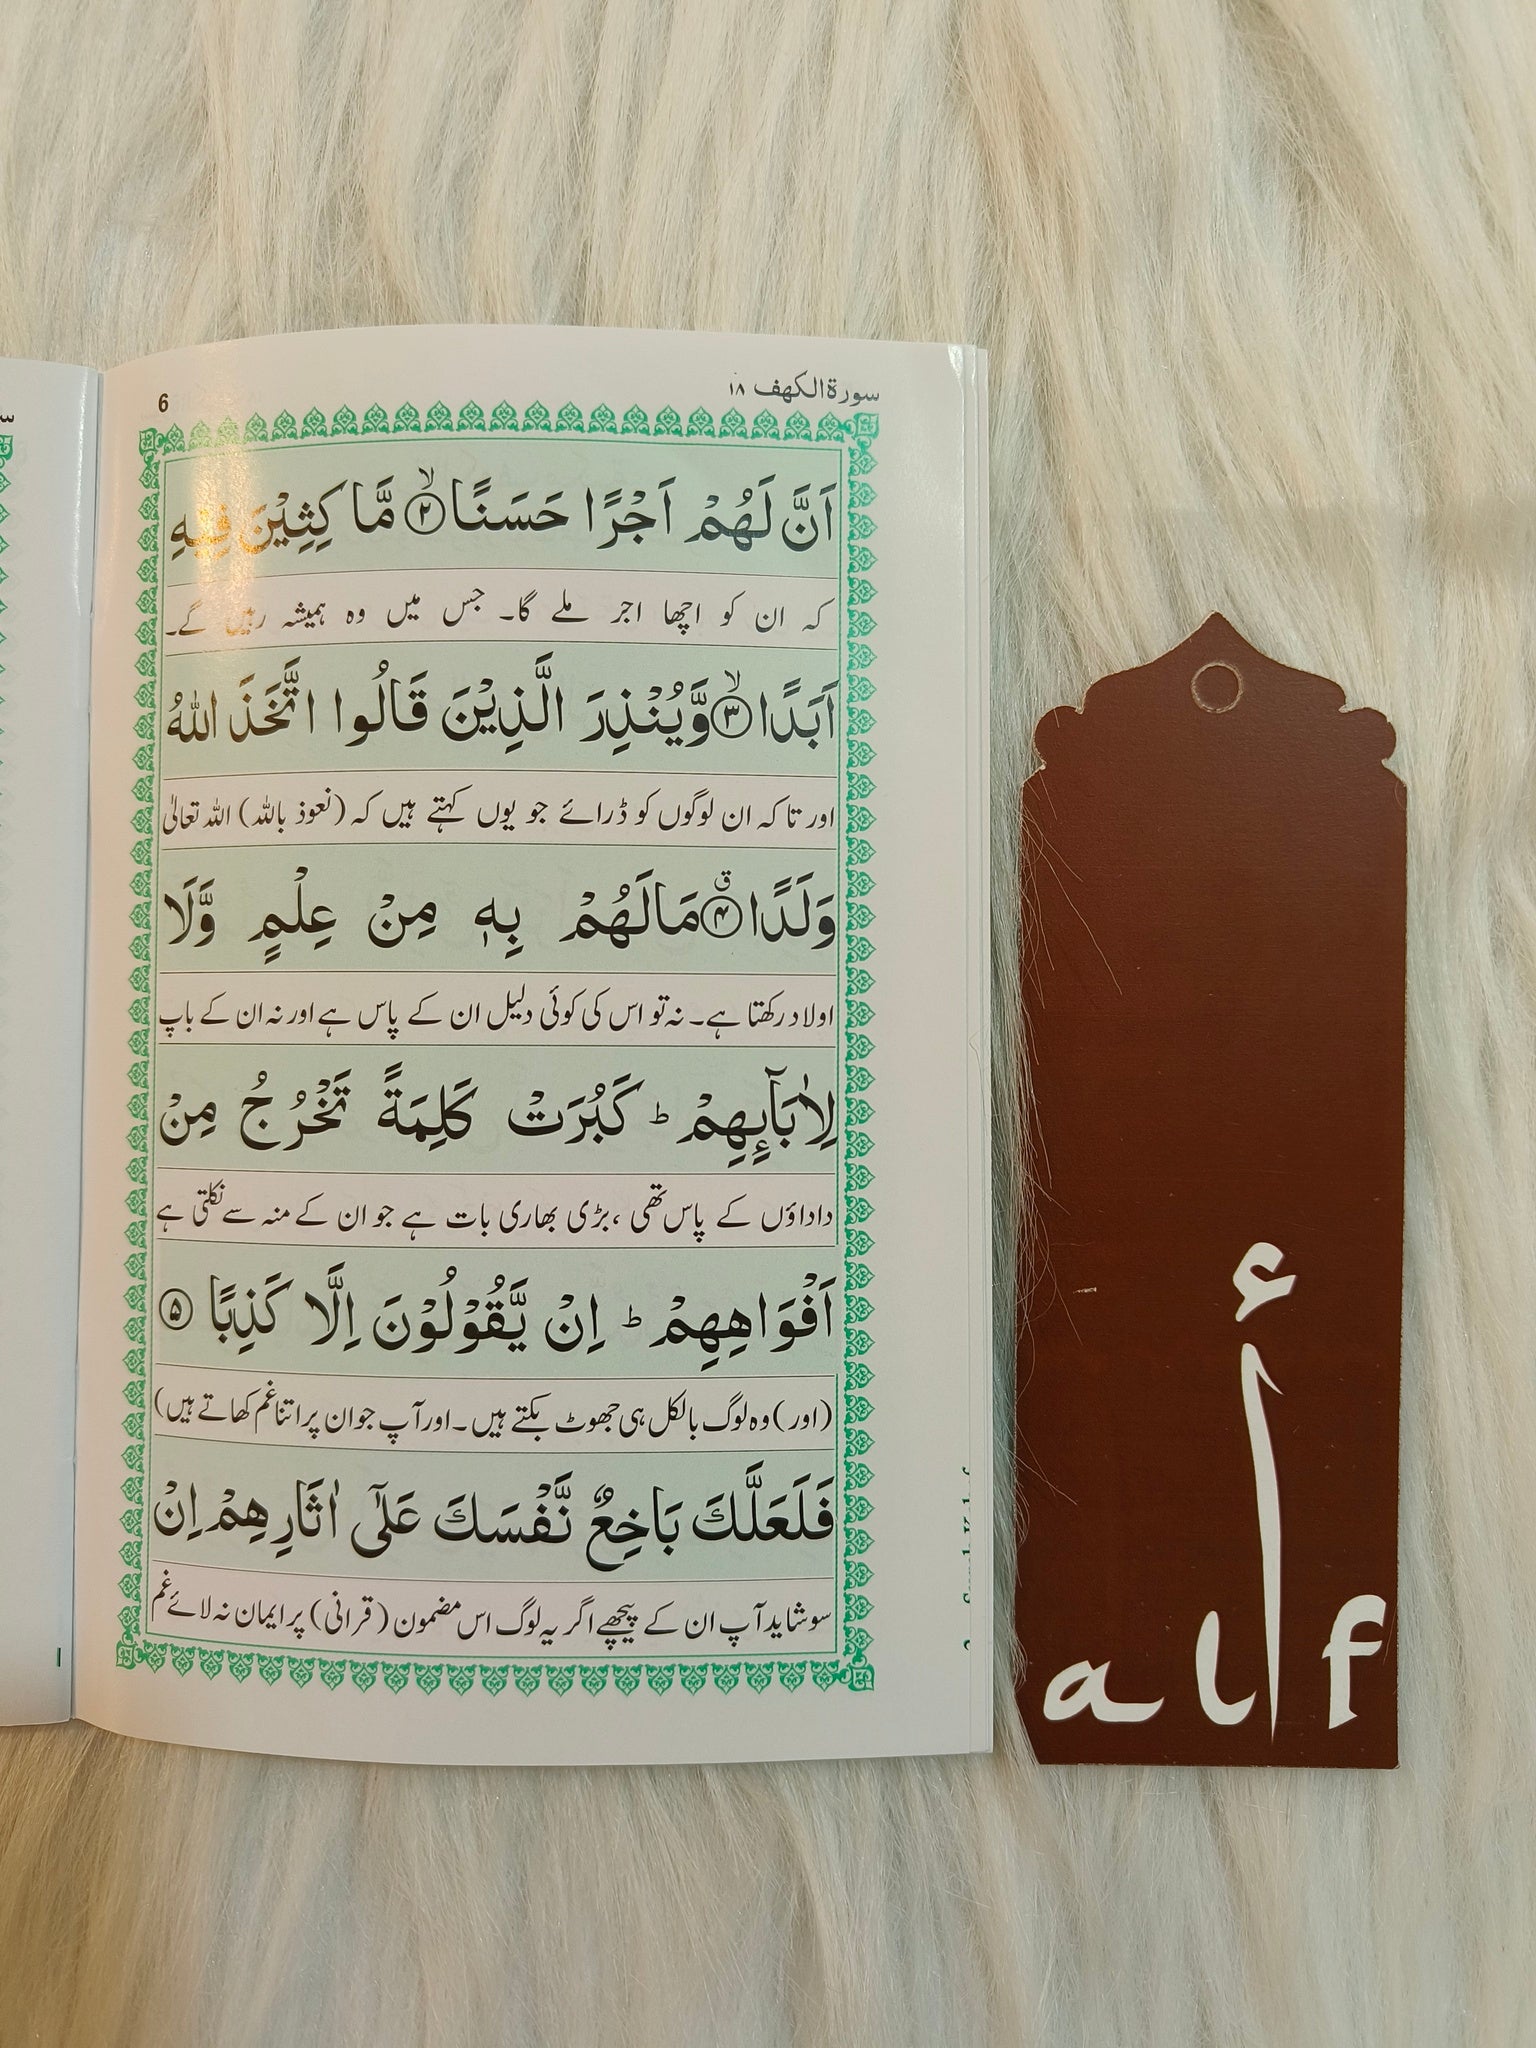 سورة الکھف ۱۸
6
اَنَّ لَهُمْ اَجْرًا حَسَنًا ۙ﴿۲﴾ مَّاكِثِيْنَ فِيْهِ
کہ ان کو اچھا اجر ملے گا۔ جس میں وہ ہمیشہ رہیں گے۔
اَبَدًا ۙ﴿۳﴾ وَّيُنْذِرَ الَّذِيْنَ قَالُوا اتَّخَذَ اللّٰهُ
اور تاکہ ان لوگوں کو ڈرائے جو یوں کہتے ہیں کہ (نعوذ باللہ) اللہ تعالیٰ
وَلَدًا ۗ﴿۴﴾ مَالَهُمْ بِهٖ مِنْ عِلْمٍ وَّلَا
اولاد رکھتا ہے۔ نہ تو اس کی کوئی دلیل ان کے پاس ہے اور نہ ان کے باپ
لِاٰبَآىِٕهِمْ ؕ كَبُرَتْ كَلِمَةً تَخْرُجُ مِنْ
داداؤں کے پاس تھی، بڑی بھاری بات ہے جو ان کے منہ سے نکلتی ہے
اَفْوَاهِهِمْ ؕ اِنْ يَّقُوْلُوْنَ اِلَّا كَذِبًا ﴿۵﴾
(اور) وہ لوگ بالکل ہی جھوٹ بکتے ہیں۔ اور آپ جو ان پر اتنا غم کھاتے ہیں)
فَلَعَلَّكَ بَاخِعٌ نَّفْسَكَ عَلٰٓى اٰثَارِهِمْ اِنْ
سو شاید آپ ان کے پیچھے اگر یہ لوگ اس مضمون (قرانی) پر ایمان نہ لائے غم
أ
alf